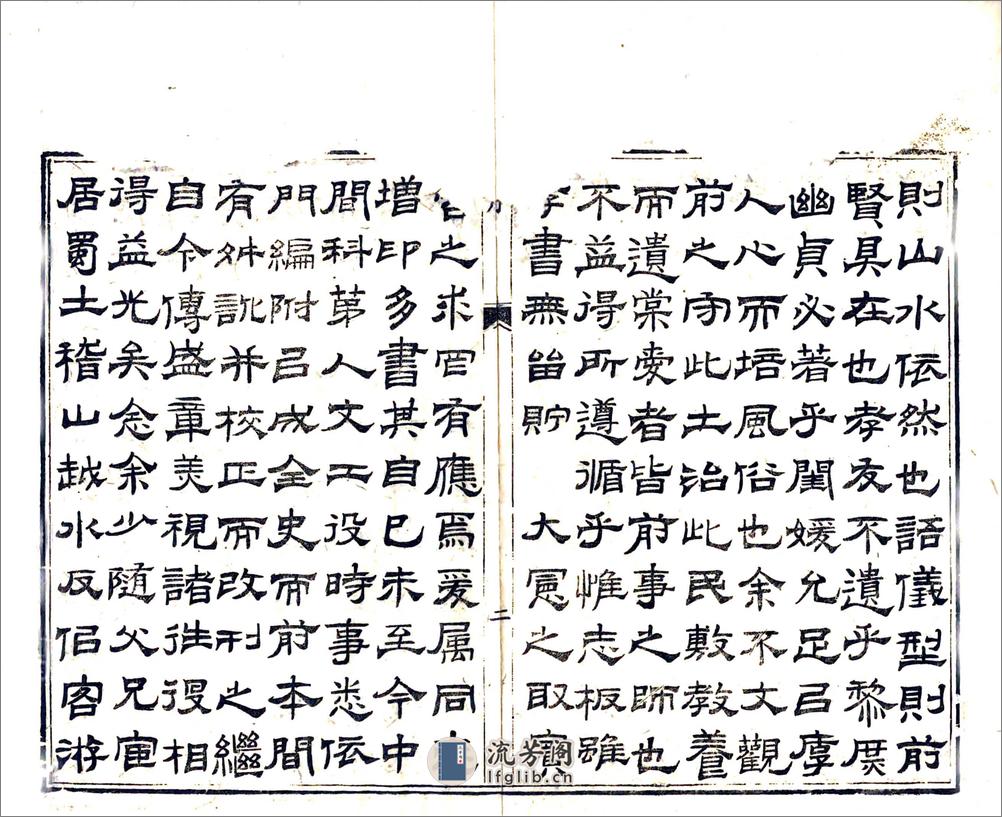 則山水依然也語儀型則前
賢具在也孝友不遺乎黎庶
幽貞必著乎閨媛允足㠯厚
人心而培風俗也余不文觀
前之守此土治此民敷教養
而遺棠愛者皆前事之師也
不益得所遵循乎惟志板雖
書無畱貯 大憲之取
二
之求罔有應焉爰属同
增印多書其自己未至今中
間科第人文工役時事悉依
門編附㠯成全史而前本間
有舛訛并校正而改刊之繼
自今傳盛章美視諸往役相
得益光矣念余少隨父兄宦
居蜀土稽山越水反侣客游
流芳阁
lfglib.cn